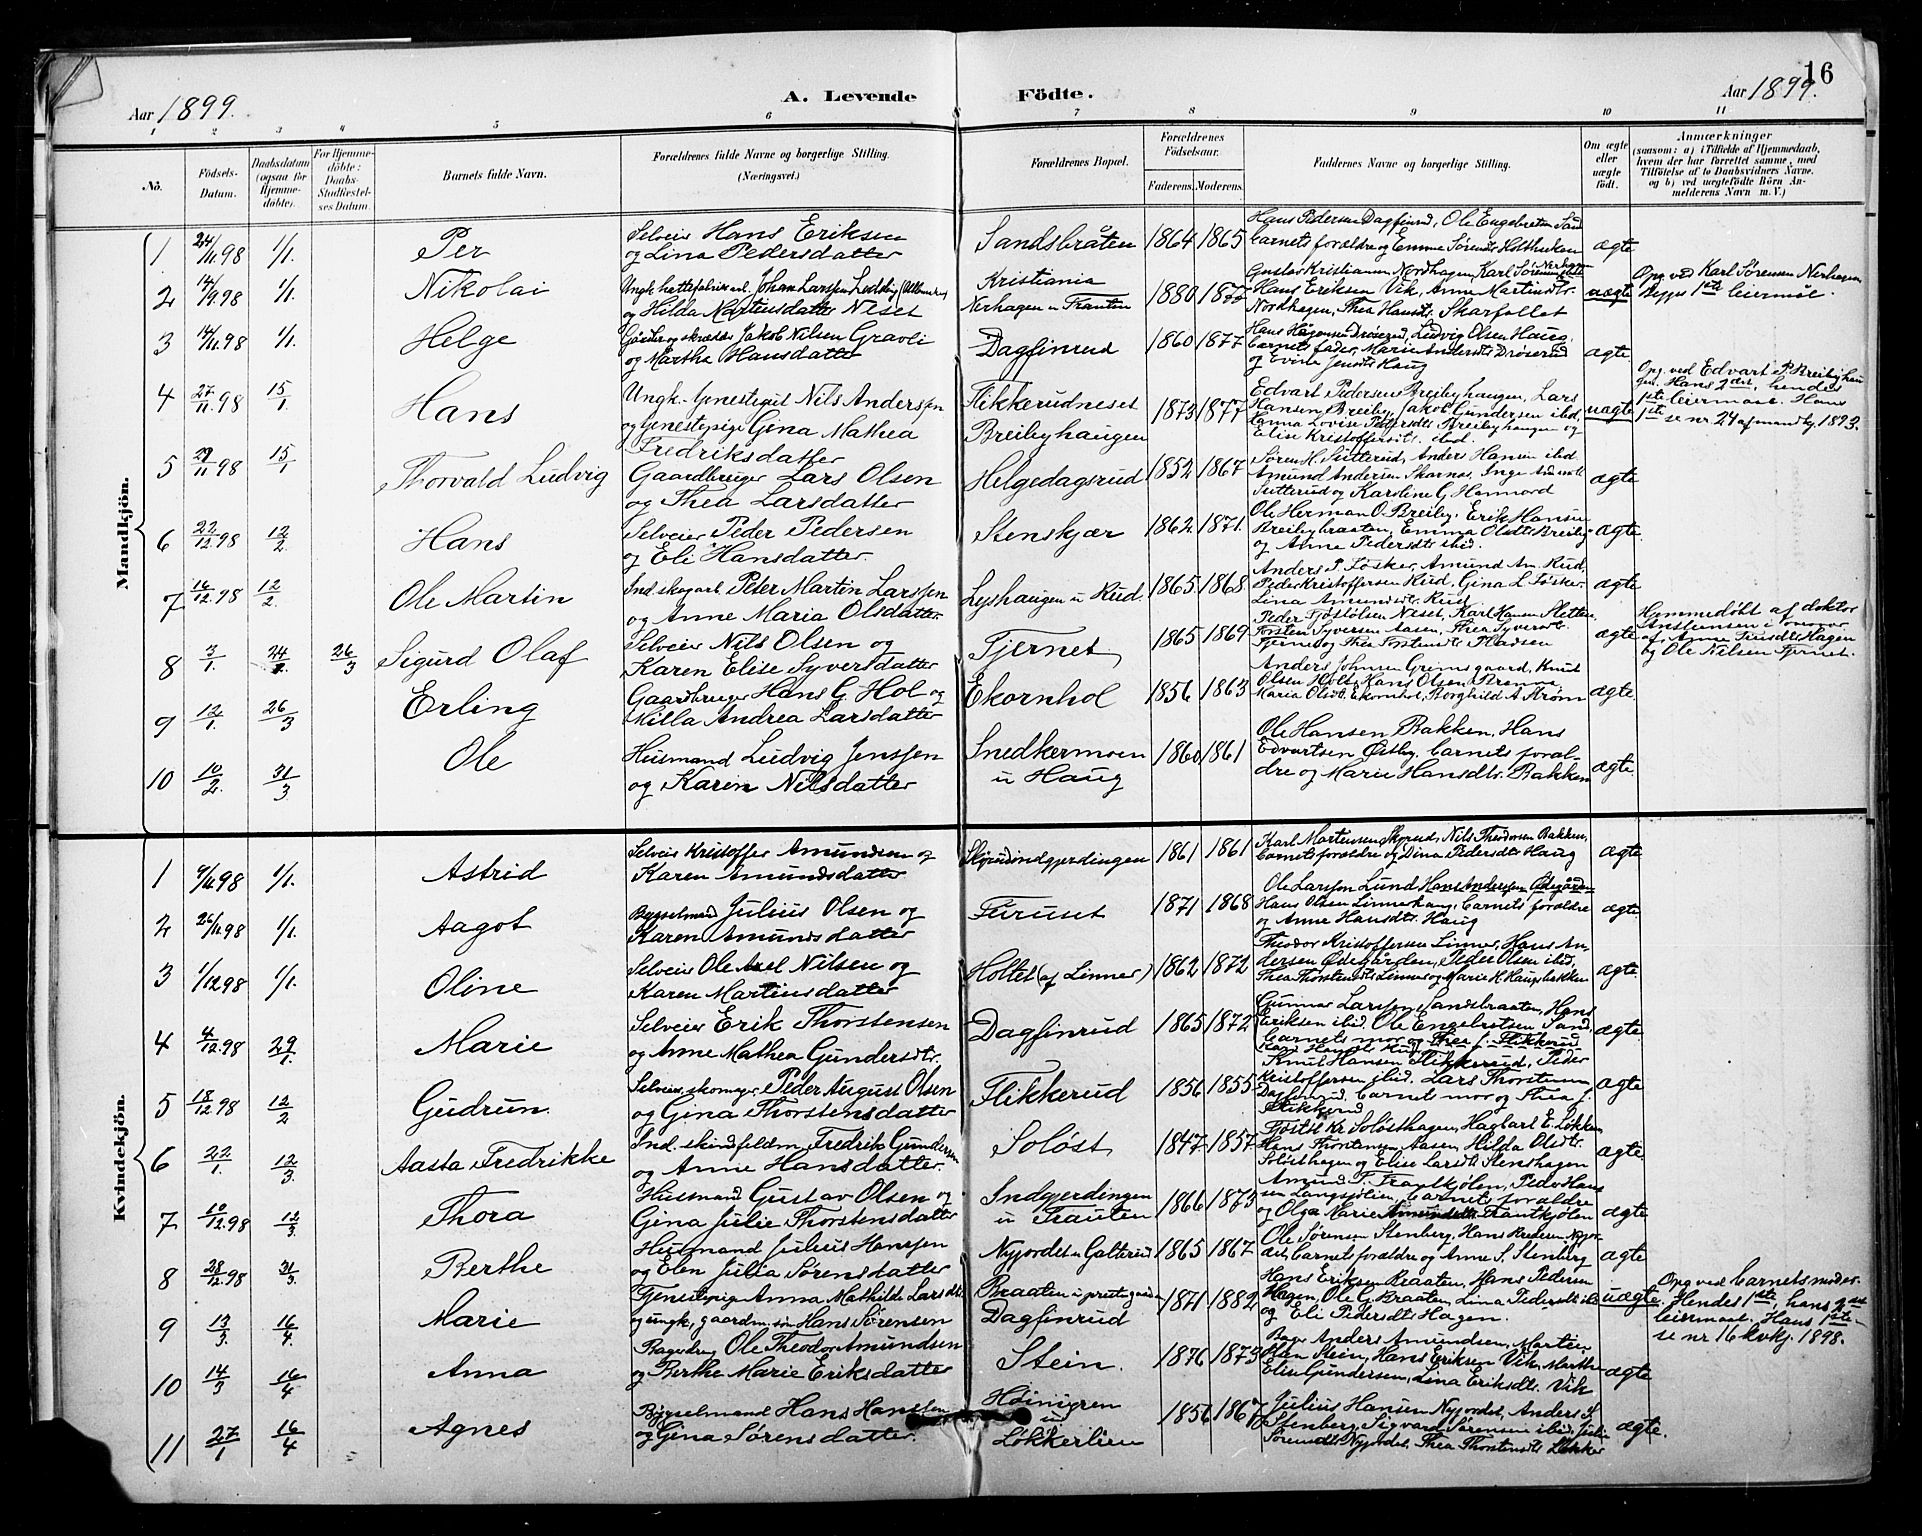 Aar 1899.
A. Levende Födte.
Aar 1899.
16
1 2 3 4 5 6 7 8 9 10 11
No.
Födsels-Datum.
Daabsdatum (ogsaa for Hjemme-döbte).
For Hjemme-döbte: Daabs-Stadfæstel-ses Datum.
Barnets fulde Navn.
Forældrenes fulde Navne og borgerlige Stilling. (Næringsvei.)
Forældrenes Bopæl.
Forældrenes Födselsaar.
Faderens. Moderens.
Faddernes Navne og borgerlige Stilling.
Om ægte eller uægte födt.
Anmærkninger
(saasom: a) i Tilfælde af Hjemmedaab, hvem der har forrettet samme, med Tilföielse af to Daabsvidners Navne. og b) ved uægtefödte Börn Anmelderens Navn m. V.)
Mandkjön.
1 24/11.98 1/1. Per
Selveier Hans Eriksen
og Lina Pedersdatter
Sandsbråten 1864 1865
Hans Pedersen Dagfinrud, Ole Engebretsen Sand
barnets forældre og Emma Sørensdt. Holthuskan
ægte
2 14/9.98 1/1. Nikolai
Johan Larssen
og Hilda Martinsdatter Neset
Kristiania
Nerhagen u Trauten
1880
Gustav Kristiansen Nordhagen, Karl Sørensen Nerhagen
Hans Eriksen Vik, Anne Martinsdtr.
Nordhagen, Thea Hansdt. Skarfollet
uægte
Opg. ved Karl Sørensen Nerhagen
Begges 1ste leiermål.
3 14/11.98 1/1. Helge
Gårdbr og skrædder Jakob Nilsen Gravli
og Martha Hansdatter
Dagfinrud 1860 1877
Hans Hågensen Drøserud, Ludvig Olsen Haug,
barnets fader, Marie Andersdt. Drøserud
og Evine Jensdt. Haug
ægte
4 27/11.98 15/1. Hans
Ungk. Nils Anderssen
og Gina Mathea
Fredriksdatter
Flikkerudneset
Breibyhaugen
1873 1877
Edvart Pedersen Breibyhaugen, Lars
Hansen Breiby, Jakob Gundersen ibid,
Lovise Pedersdt. Breibyhaugen og
Elise Kristoffersdt. ibid.
uægte
Opg. ved Edvart P. Breibyhaugen
Hans 2det, hendes
1ste leiermaal. Hans
1ste se nr. 24 af mandkj. 1893.
5 29/11 98 15/1 Thorvald Ludvig
Gaardbruger Lars Olsen
og Thea Larsdatter
Helgedagsrud 1852 1867
Søren H. Sutterud, Anders Hansen ibid.
Amund Andersen Skarnæs, Inga
Sutterud og Karoline G. Hemmord
ægte
6 22/12 98 12/2. Hans
Selveier Peder Pedersen
og Eli Hansdatter.
Stenskjær 1862. 1871.
Ole Herman O. Breiby, Erik Hansen
Breibybraaten, Emma Olsdt. Breiby
og Anne Pedersdt. ibid.
ægte
7 16/12.98 12/2. Ole Martin
Ind. skogarb. Peter Martin Larssen
og Anne Maria Olsdatter
Lyshaugen u Rud. 1865. 1868.
Anders P. Fosker, Amund Am. Rud,
Peder Kristoffersen Rud, Gina L. Fosker
Lina Amundsdt. Rud
ægte
8 3/1. 24/1. 26/3 Sigurd Olaf
Selveier Nils Olsen og
Karen Elise Syversdatter
Tjernet 1865 1869
Peder Tjøstolsen Neset, Karl Hansen Sletten
Torsten Syversen Aasen, Thea Syversdt.
Tjernet og Thea Torstensdt. Pladsen
ægte
Hjemmedøbt af doktor
af Anne Hagen
og Ole Nilsen Tjernet.
9 12/1. 26/3 Erling
Gaardbruger Hans G. Hol og
Milla Andrea Larsdatter
Ekornhol 1856 1863
Anders Johnsen Grimsgaard, Knut
Olsen Holt, Hans Olsen
Maria Olsdt. Ekornhol, Borghild A. Strøm
ægte.
10 10/2. 31/3 Ole
Husmand Ludvig Jenssen
og Karen Nilsdatter
Snedkermoen
u Haug
1860 1861
Ole Hansen Bakken, Hans
Edvartsen Østby, barnets foræl-
dre og Marie Hansdtr. Bakken
ægte.
Kvindekjön.
1 98 1/1. Astrid
Selveier Kristoffer Amundsen og
Karen Amundsdatter
Skjerudindgjerdingen 1861 1861
Karl Martinsen Skjerud, Nils Theodorsen Bakken,
barnets forældre og Dina Pedersdt. Haug
ægte
2 26/11.98 1/1. Aagot
Bygselmand Julius Olsen og
Karen Amundsdatter
Furuset 1871 1868
Ole Larssen Lund Hans Andersen Ødegården
Hans Olsen Linnerhaug, barnets forældre
og Anne Hansdt. Haug
ægte.
3 1/12 98 1/1. Oline
Selveier Ole Axel Nilsen og
Karen Martinsdatter
Holtet (af Linner) 1862 1872
Theodor Kristoffersen Linner, Hans An-
dersen Ødegården, Peder Olsen ibid,
Thea Thorstensdt. Linner og Marie H. Haugsbakken
ægte.
4 4/12.98 29/1. Marie
Selveier Erik Thorstensen
og Anne Mathea Gundersdtr.
Dagfinrud 1865 1872
Gunnar Larssen Sandsbraaten, Hans
Eriksen ibid. Ole Engebretsen Sand,
barnets mor og Thea J. Flikkerud
ægte.
5 18/12 98 12/2 Gudrun.
Selveier, skomager Peder August Olsen
og Gina Thorstensdatter
Flikkerud 1856 1855
Knut Hansen Flikkerud, Peder
Kristoffersen ibid. Lars Thorstensen
Dagfinrud, barnets mor og Thea J.
Flikkerud
ægte
6 22/1. 12/3. Aasta Fredrikke
Ind. skindfeldm. Fredrik Gundersen
og Anne Hansdatter.
Soløst 1847 1857
Tjøstl Kr. Soløsthagen, Hagbart E. Løkken
Hans Thorstensen Aasen, Hilda Olsdtr.
Soløsthagen og Elise Larsdt. Stenshagen
ægte.
7 10/12.98 12/3 Thora
Husmand Gustav Olsen og
Gina Julie Thorstensdatter
Indgjerdingen
u Trauten
1866 1873
Amund T. Trautkjølen, Peder Hans
sen, barnets forældre
og Olga Marie Trautkjølen
ægte
8 28/12.98 31/3. Berthe
Husmand Julius Hanssen
og Elen Julia Sørensdatter
Nyjordet u Galterud 1865 1867
Ole Sørensen Stenberg, Hans Pedersen Nyjor-
det, barnets forældre og Anne S. Stenberg
ægte
9 13/3 16/4 Marie
Tjenestepige Anna Mathilde Larsdt.
og ungk, gaardm. søn Hans Sørensen
Braaten u prestegaarden
Dagfinrud
1871 1882
Hans Eriksen Braaten, Hans Pedersen
Hagen, Ole G. Braaten, Lina Pedersdt. ibid
og Eli Pedersdt. Hagen.
uægte.
Opg ved barnets moder.
Hendes 1ste, hans 2det
leiermaal. Hans 1ste
se nr 16 kvkj. 1898.
10 14/3 16/4 Anna
Ole Theodor Amundsen
og Berthe Marie Eriksdatter
Stein. 1876 1873
Anders Amundsen, Martin
Stein, Hans Eriksen Vik, Marthe
Elise Gundersen, Lina Eriksdt. Vik
ægte
11 27/1 16/4 Agnes
Bygselmand Hans Hanssen
og Gina Sørensdatter.
Høimyren
u
Løkkerlien
1856 1867
Julius Hansen Nyjordet, Anders S.
Stenberg, Sigvard Sørensen ibid,
Sørensdt. Nyjordet, Thea Thorstensdt. Løkker
ægte.